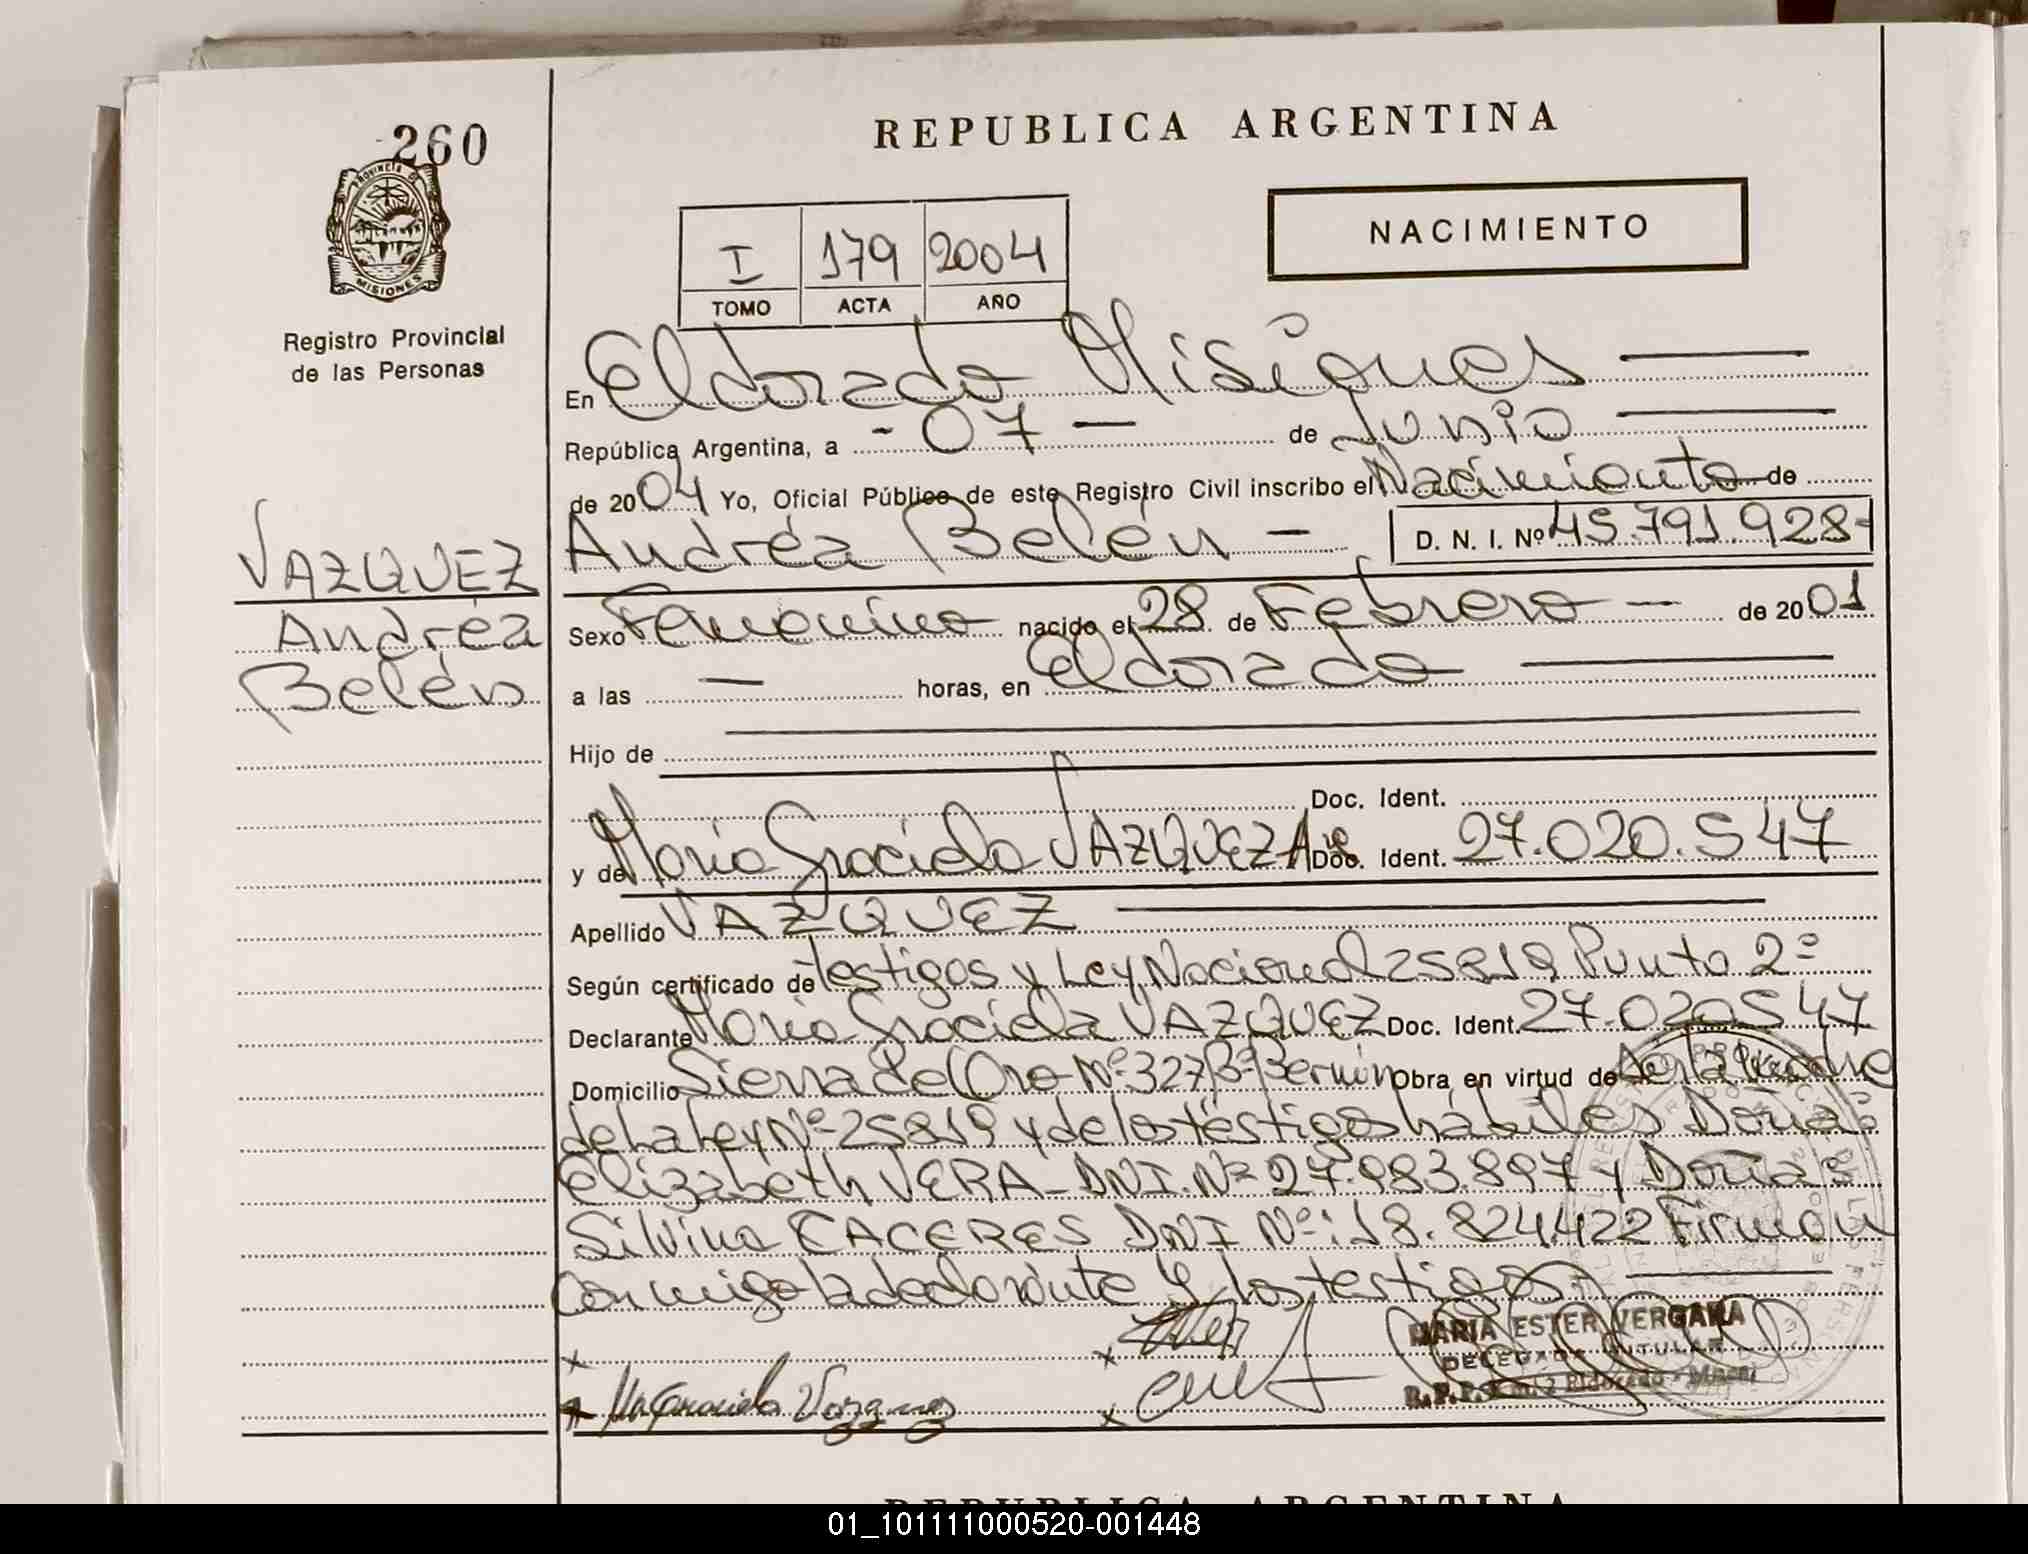 260
PROVINCIA DE
MISIONES
Registro Provincial
de las Personas
VAZQUEZ
Andréa
Belén
REPUBLICA ARGENTINA
I 179 2004
TOMO ACTA AÑO
NACIMIENTO
En Eldorado Misiones
República Argentina, a - 07 - de Junio
de 2004 Yo, Oficial Público de este Registro Civil inscribo el Nacimiento de
Andréa Belén - D. N. I. Nº 45.791.928-
Sexo Femenino nacido el 28 de Febrero - de 2001
a las - horas, en Eldorado
Hijo de
Doc. Ident.
y de Maria Graciela VAZQUEZ Doc. Ident. 27.020.547
Apellido VAZQUEZ
Según certificado de testigos y Ley Nacional 25819 Punto 2º
Declarante Maria Graciela VAZQUEZ Doc. Ident. 27.020547
Domicilio Sierra de Oro Nº 327 Bº Obra en virtud de
de la Ley Nº 25819 y de los testigos hábiles Doña:
Elizabeth VERA - DNI. Nº 27.983.897 y Doña:
Silvina CACERES DNI Nº: 18.824.422 Firman
conmigo la declarante y los testigos.
Ma Graciela Vazquez
MARIA ESTER VERGARA
DELEGADA TITULAR
REPUBLICA ARGENTINA
01_101111000520-001448